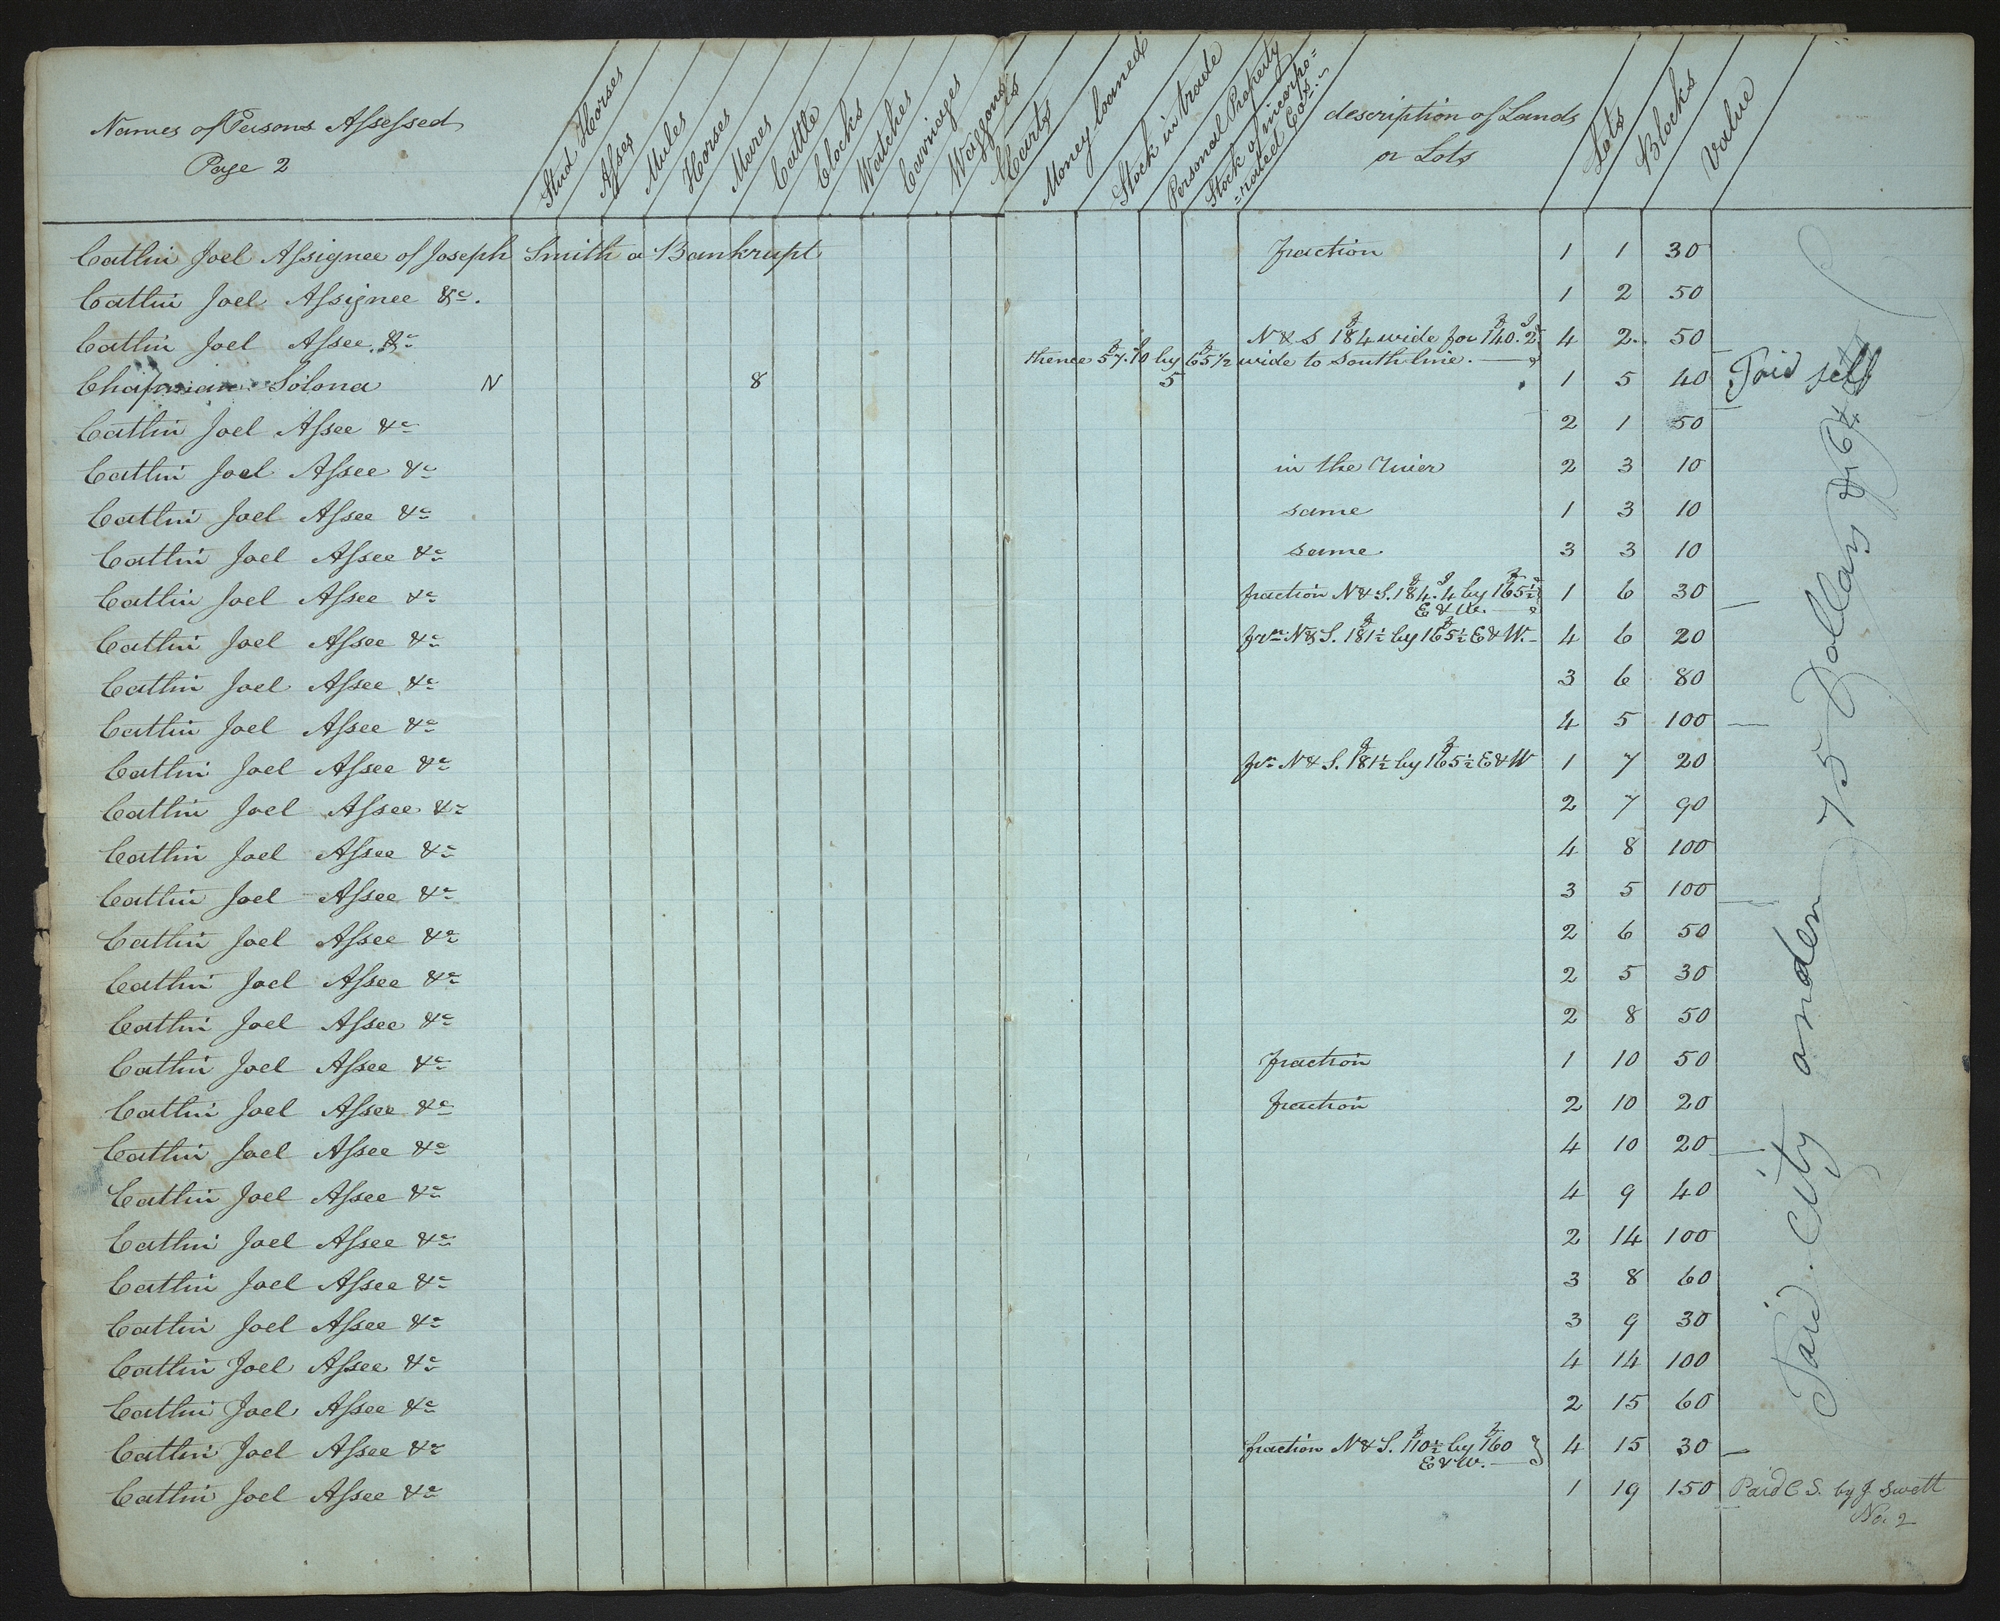 Names of Persons Assessed
Page 2
Stud Horses
Asses
Mules
Horses
Mares
Cattle
Clocks
Watches
Carriages
Waggons &
Carts
Money loaned
Stock in trade
Personal Property
Stock of incorpo=
=rated Cos:
description of Lands
or Lots
Lots
Blocks
Value
Catlin Joel Assignee of Joseph Smith a Bankrupt fraction 1 1 30
Catlin Joel Assignee &c. 1 2 50
Catlin Joel Assee &c N & S 184 wide for 140.2 4 2 50
thence 57.10 by 65½ wide to South line.
Chapman Solona N 8 5 1 5 40 Paid self
Catlin Joel Assee &c 2 1 50
Catlin Joel Assee &c in the River 2 3 10
Catlin Joel Assee &c same 1 3 10
Catlin Joel Assee &c same 3 3 10
Catlin Joel Assee &c fraction N & S. 184.4 by 165½ 1 6 30
E & W.
Catlin Joel Assee &c frn N & S. 181½ by 165½ E & W. 4 6 20
Catlin Joel Assee &c 3 6 80
Catlin Joel Assee &c 4 5 100
Catlin Joel Assee &c frn N & S. 181½ by 165½ E & W 1 7 20
Catlin Joel Assee &c 2 7 90
Catlin Joel Assee &c 4 8 100
Catlin Joel Assee &c 3 5 100
Catlin Joel Assee &c 2 6 50
Catlin Joel Assee &c 2 5 30
Catlin Joel Assee &c 2 8 50
Catlin Joel Assee &c fraction 1 10 50
Catlin Joel Assee &c fraction 2 10 20
Catlin Joel Assee &c 4 10 20
Catlin Joel Assee &c 4 9 40
Catlin Joel Assee &c 2 14 100
Catlin Joel Assee &c 3 8 60
Catlin Joel Assee &c 3 9 30
Catlin Joel Assee &c 4 14 100
Catlin Joel Assee &c 2 15 60
Catlin Joel Assee &c fraction N & S. 110½ by 160 4 15 30
E & W.
Catlin Joel Assee &c 1 19 150 Paid C S. by J Swett
No. 2
Paid City 75 Dollars & 6¼